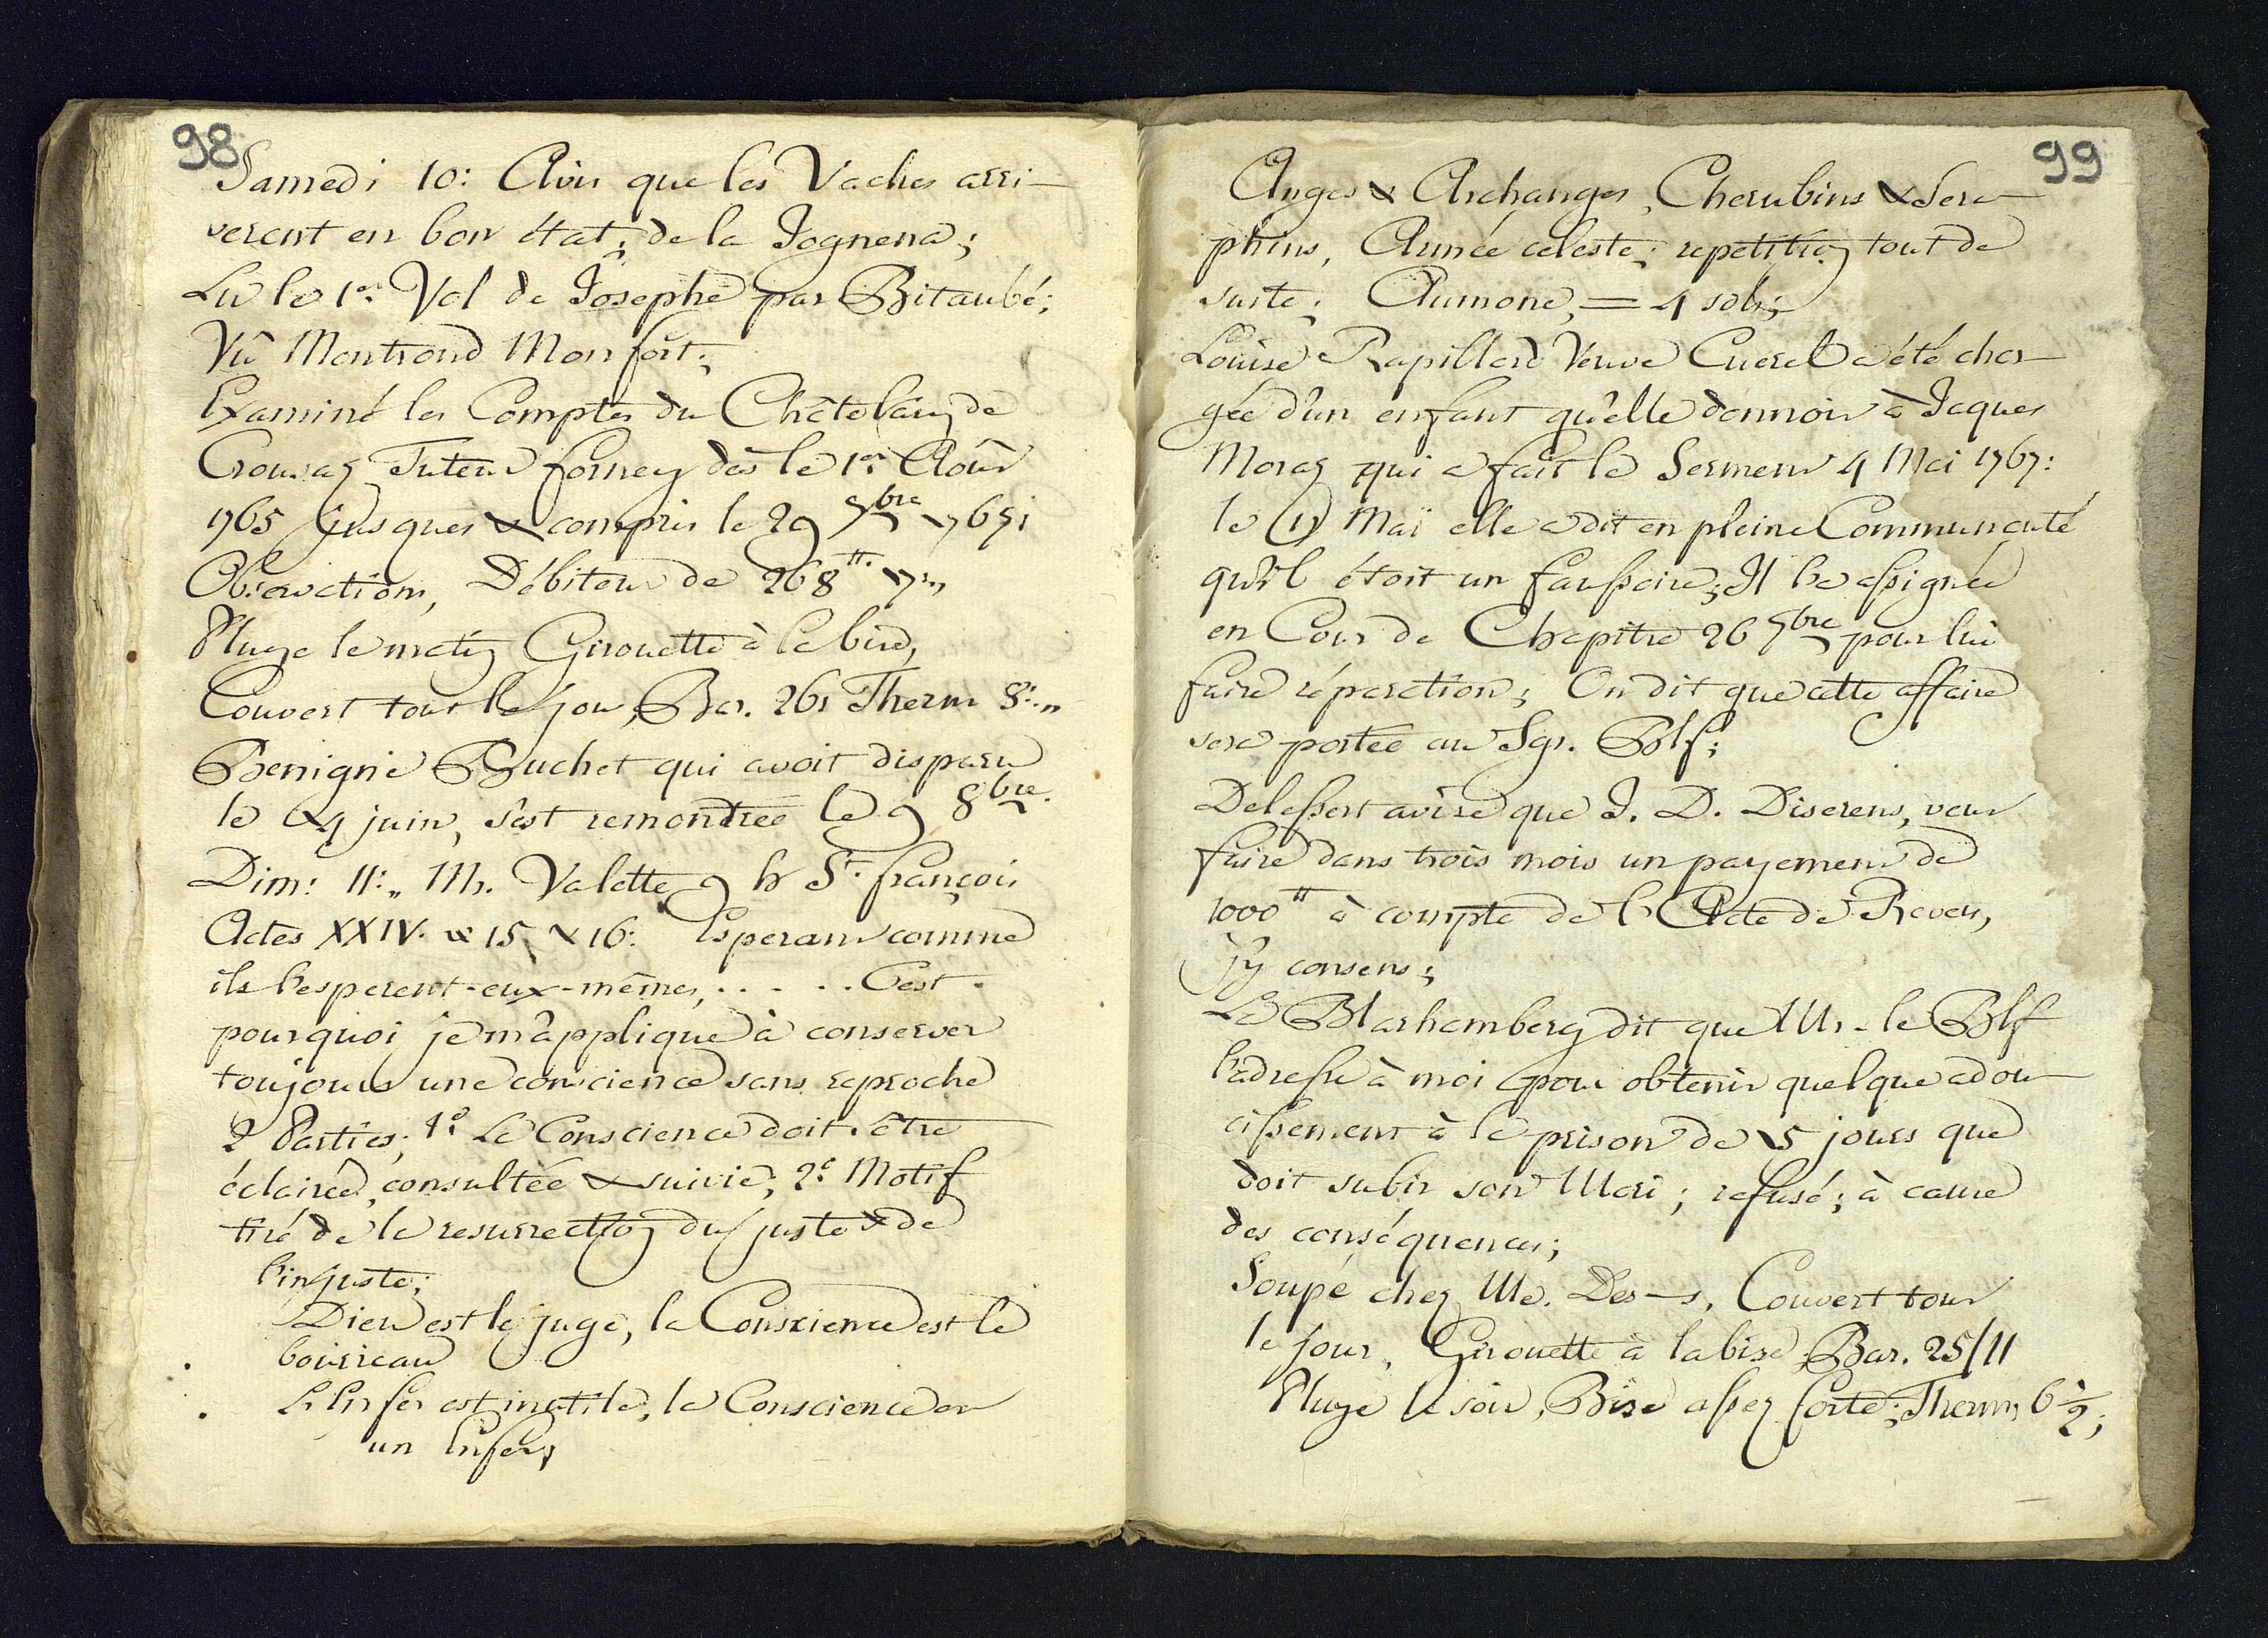 98
Samedi 10: Avis que les Vaches arri-
verent en bon état, de la Jognena;
Lu le 1er Vol de Joseph par Bitaubé;
Vû Montrond Monfort;
Examiné les Comptes du Châtelain de
Crousaz Tuteur forney dès le 1er Août
1765 jusques & compris le 29 7bre 1767;
Observations, Débiteur de 268 tt.
Pluye le matin Girouette à la bise,
Couvert tout le jour, Bar. 26 Therm 8:,,
Benigne Buchet qui avoit disparu
le 24 juin, s'est remontrée le 9 8bre.
Dim: 11:,, Mr. Valette 9 h St. françois
Actes XXIV. v 15 & 16: Esperant comme
ils l'esperent-eux-mêmes, . . . . . C'est
pourquoi je m'applique à conserver
toujours une conscience sans reproche
2 Parties; 1o. La Conscience doit être
éclairée, consultée & suivie, 2o. Motif
tiré de la resurrection du juste & de
l'injuste;
Dieu est le juge, la Conscience est le
bourreau
L'Enfer est inutile, la Conscience en
un Enfer,
99
Anges & Archanges, Cherubins & Sera-
phins, Armée celeste; repetition tout de
suite; Aumone, = 4 sols;
Louise Rapillard Veuve Cuerel a été char
gée d'un enfant qu'elle donnoit à Jaques
Moraz qui a fait le Serment 4 Mai 1767:
le 11 Mai elle a dit en pleine Communauté
qu'il étoit un faussaire; Il l'a assignée
en Cour de Chapitre 26 7bre pour lui
faire réparation; On dit que cette affaire
sera portée au Sgr. Blf;
Delessert avise que J. D. Diserens, veut
faire dans trois mois un payement de
1000 tt à compte de l'Acte de Revers,
j'y consens;
La Blashemberg dit que Mr. le Blf
l'adresse à moi pour obtenir quelque adou-
cissement à la prison de 5 jours que
doit subir son Mari; refusé; à cause
des conséquences;
Soupé chez Me. Des—s, Couvert tout
le jour, Girouette à la bise, Bar. 25/11
Pluye le soir, Bise assez forte; Therm, 6 1/2;